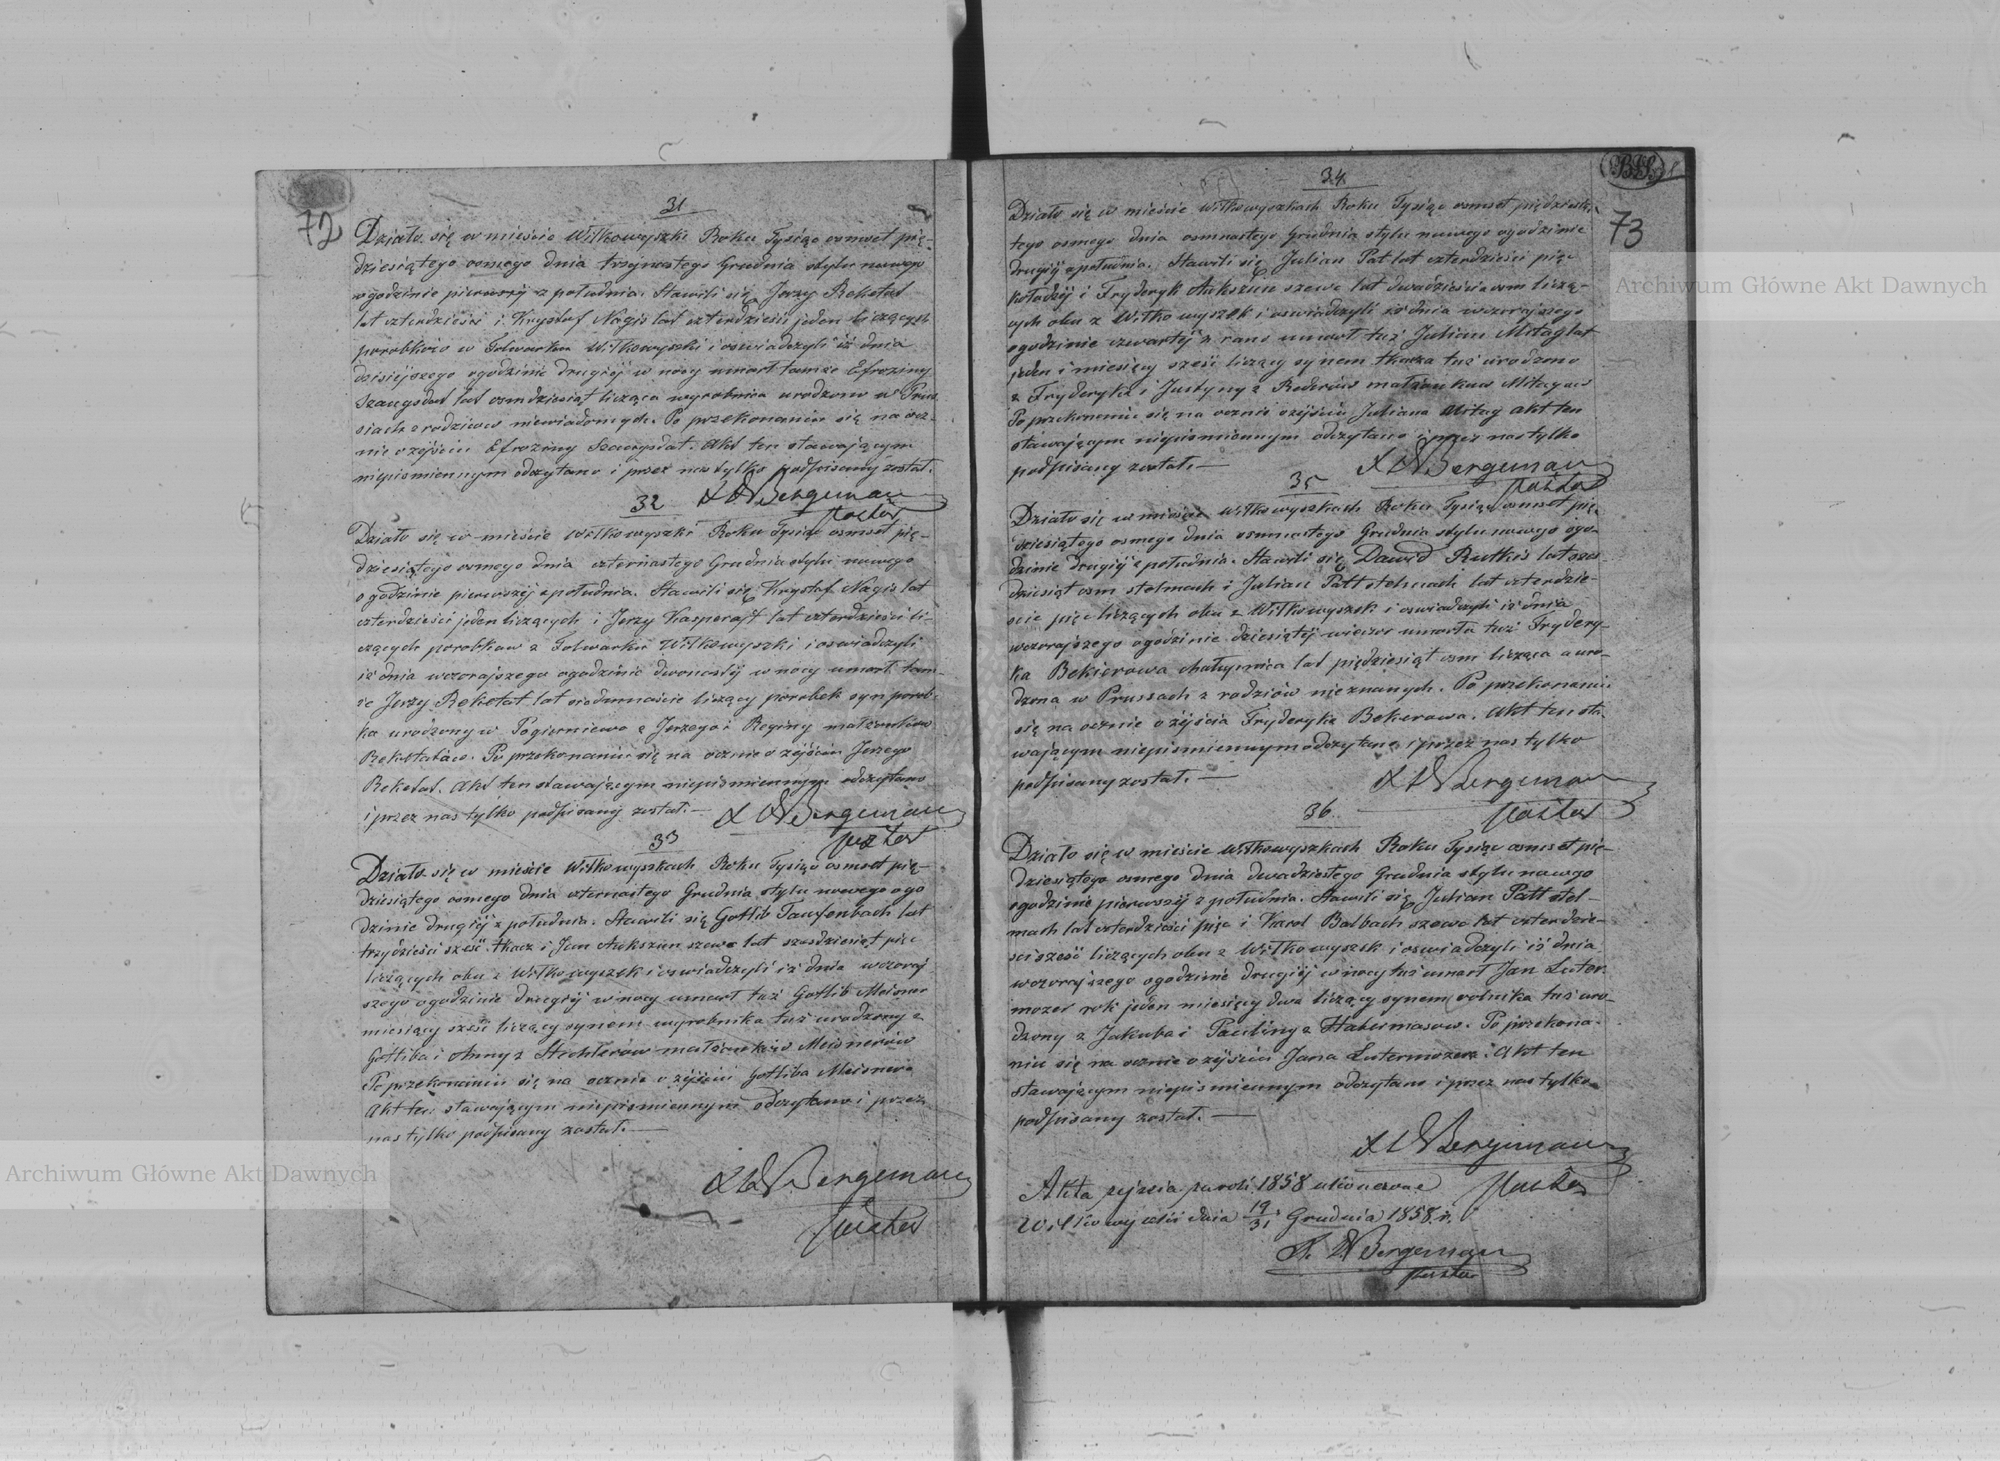 72
31
Działo się w mieście Wiłkowyszki Roku Tysiąc osmset pię-
dziesiątego osmego dnia trzynastego Grudnia stylu nowego
o godzinie pierwszy z południa. Stawili się Jerzy Reketat
lat czterdzieści i Krysztof Nagis lat czterdzieści jeden liczących
parobków w Folwarku Wiłkowyszki i oswiadczyli iż dnia
dzisiejszego ogodzinie drugiej w nocy umarł tamże Efroziny
Szaugsdat lat osmdziesiąt licząca wyrobnica urodzona w Prus
siach z rodziców niewiadomych. Po przekonaniu się na ocz-
nie o zejściu Efroziny Szaugsdat. Akt ten stawającym
niepismiennym odczytano i przez nas tylko podpisany został.
X D Bergeman
Pastor
32
Działo się w mieście Wiłkowyszki Roku Tysiąc osmset pię-
dziesiątego osmego dnia czternastego Grudnia stylu nowego
o godzinie pierwszéj z południa. Stawili się Krysztof Nagis lat
czterdzieści jeden liczących i Jerzy Kasperajt lat czterdzieści li-
czących parobków z Folwarku Wiłkowyszki i oswiadczyli
iż dnia wczorajszego ogodzinie dwunastéj w nocy umarł tam-
że Jerzy Reketat lat siedemnaście liczący parobek syn parob-
ka urodzony w Pogierniewo z Jerzego i Reginy małżonków
Reketatów. Po przekonaniu się na ocznie o zejściu Jerzego
Reketat. Akt ten stawającym niepismiennym odczytano
i przez nas tylko podpisany został. —
X D Bergeman
Pastor
33
Działo się w mieście Wiłkowyszkach Roku Tysiąc osmset pię-
dziesiątego osmego dnia czternastego Grudnia stylu nowego ogo
dzinie drugiéj z południa. Stawili się Gotlib Taufenbach lat
trzydzieści sześć tkacz i Jan Aukszun szewc lat szesdziesiąt pięć
liczących obu z Wiłkowyszek i oswiadczyli iż dnia wczoraj
szego ogodzinie drugiéj w nocy umarł tuż Gotlib Meisner
miesięcy sześć liczący synem wyrobnika tuż urodzony z
Gotliba i Anny z Sichlerów małżonków Meisnerów
Po przekonaniu się na ocznie o zejściu Gotliba Meisnera
Akt ten stawającym niepismiennym odczytano i przez
nas tylko podpisany został. —
X D Bergeman
Pastor
73
34
Działo się w mieście Wiłkowyszkach Roku Tysiąc osmset piędziesią-
tego osmego dnia osmnastego Grudnia stylu nowego ogodzinie
drugiéj z południa. Stawili się Julian Pat lat czterdzieści pięć
kołodzij i Fryderyk Aukszun szewc lat dwadzieścia osm liczą-
cych obu z Wiłkowyszek i oswiadczyli iż dnia wczorajszego
ogodzinie czwartéj z rana umarł tuż Julian Mitag lat
jeden i miesięcy sześć liczący synem tkacza tuż urodzony
z Fryderyka i Justyny z Rederów małżonków Mitagów
Po przekonaniu się na ocznie o zejściu Juliana Mitag akt ten
stawającym niepismiennym odczytano i przez nas tylko
podpisany został. —
X D Bergeman
Pastor
35
Działo się w mieście Wiłkowyszkach Roku Tysiąc osmset pię-
dziesiątego osmego dnia osmnastego Grudnia stylu nowego ogo-
dzinie drugiéj z południa. Stawili się Dawid Rutkis lat szes-
dziesiąt osm stelmach i Julian Patt stelmach lat czterdzie-
ście pięć liczących obu z Wiłkowyszek i oswiadczyli iż dnia
wczorajszego ogodzinie dziesiątéj wieczor umarła tuż Frydery-
ka Bekierowa chałupnica lat pięćdziesiąt osm licząca a uro-
dzona w Prussach z rodziców nieznanych. Po przekonaniu
się na ocznie o zejścia Fryderyka Bekerawa. Akt ten sta-
wającym niepismiennym odczytano i przez nas tylko
podpisany został. —
X D Bergeman
Pastor
36
Działo się w mieście Wiłkowyszkach Roku Tysiąc osmset pię-
dziesiątego osmego dnia dwudziestego Grudnia stylu nowgo
ogodzinie pierwszéj z południa. Stawili się Julian Patt stel-
mach lat czterdzieści pięć i Karol Balbach szewc lat czterdzie-
ści sześć liczących obu z Wiłkowyszek i oswiadczyli iż dnia
wczorajszego ogodzinie drugiéj w nocy tuż umarł Jan Luter
mozer rok jeden miesięcy dwa liczący synem rolnika tuż uro-
dzony z Jakuba i Pauliny z Habermasow. Po przekona-
niu się na ocznie o zejściu Jana Lutermozera. Akt ten
stawającym niepismiennym odczytano i przez nas tylko
podpisany został. —
X D Bergeman
Pastor
Akta zejścia za rok 1858 ukończone
Wiłkowyszki dnia 19/31 Grudnia 1858 r.
X. D Bergeman
Pastor
Archiwum Główne Akt Dawnych
Archiwum Główne Akt Dawnych